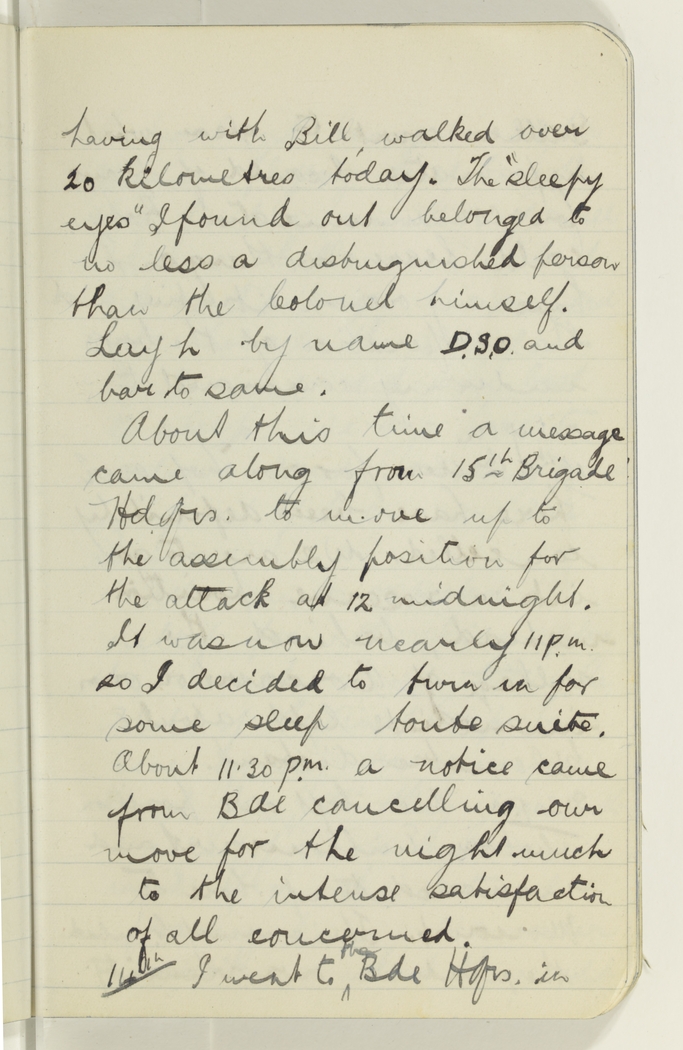 having with Bill, walked over
20 kilometres today. The "sleepy
eyes" I found out belonged to
no less a distinguished person
than the Colonel himself.
Layh by name D.S.O. and
bar to same.
About this time a message
came along from 15th Brigade
Hdqrs. to move up to
the assembly position for
the attack at 12 midnight.
It was now nearly 11 p.m.
so I decided to turn in for
some sleep toute suite.
About 11.30 p.m. a notice came
from Bde cancelling our
move for the night much
to the intense satisfaction
of all concerned.
11th I went to the Bde Hqrs. in